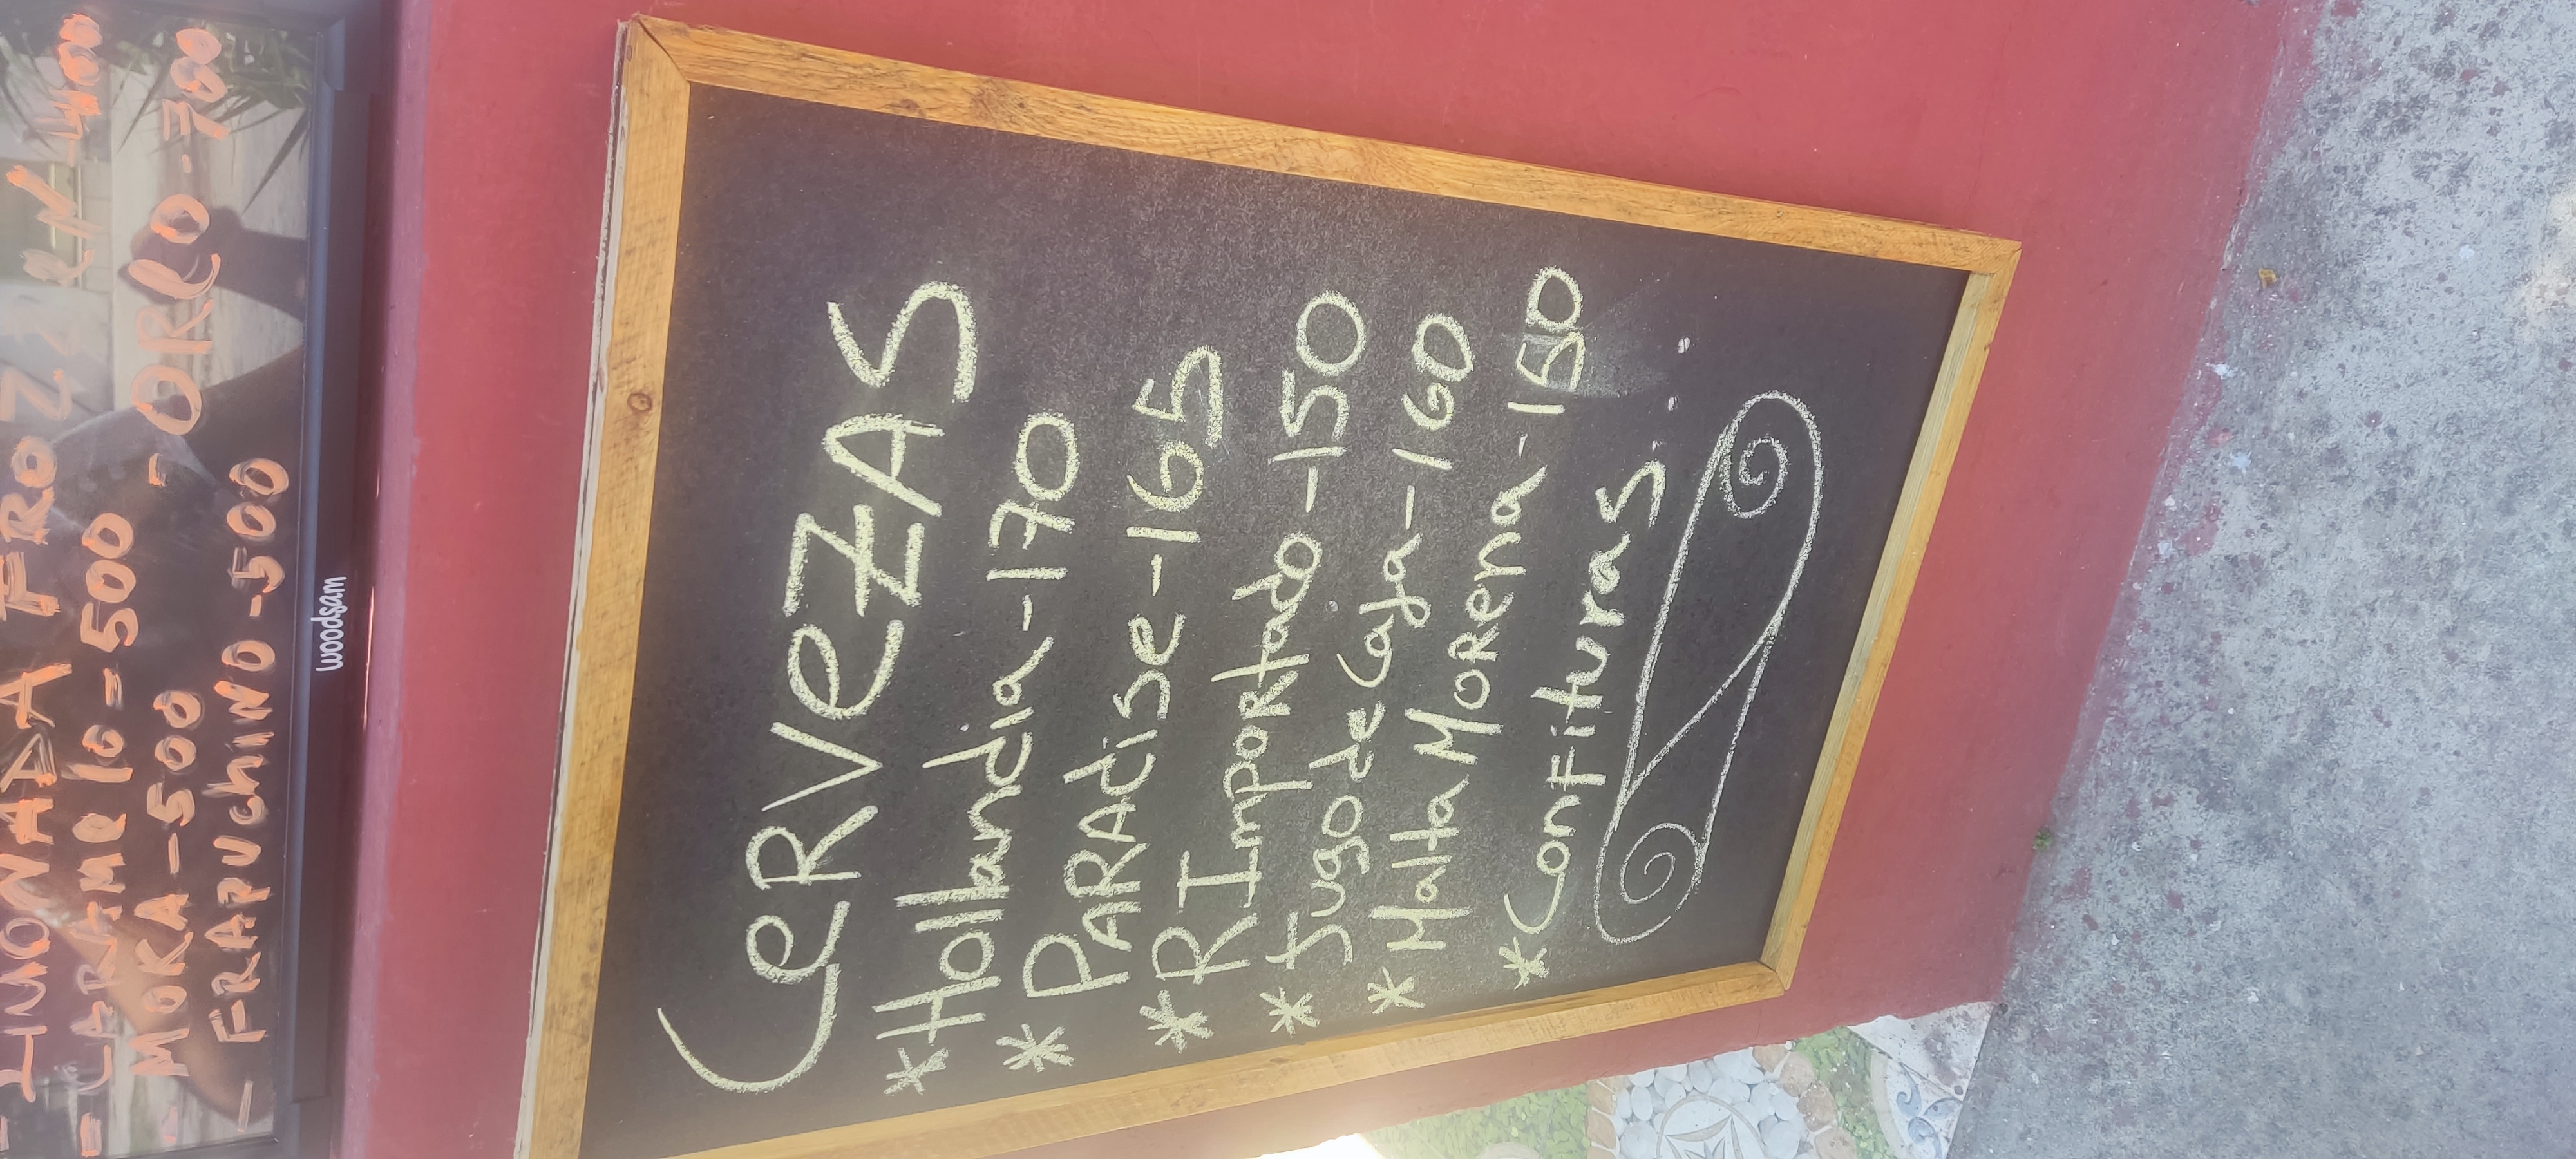 - LIMONADA FROZZEN - 400
- CARAMElo - 500
MOKA - 500 - OReO - 700
- FRAPUchiNO - 500
woodsam
CeRVeZAS
* Hollandia - 170
* PARAdise - 165
* R Importado - 150
* Jugo de Caja - 160
* Malta MORena - 150
* Confituras...